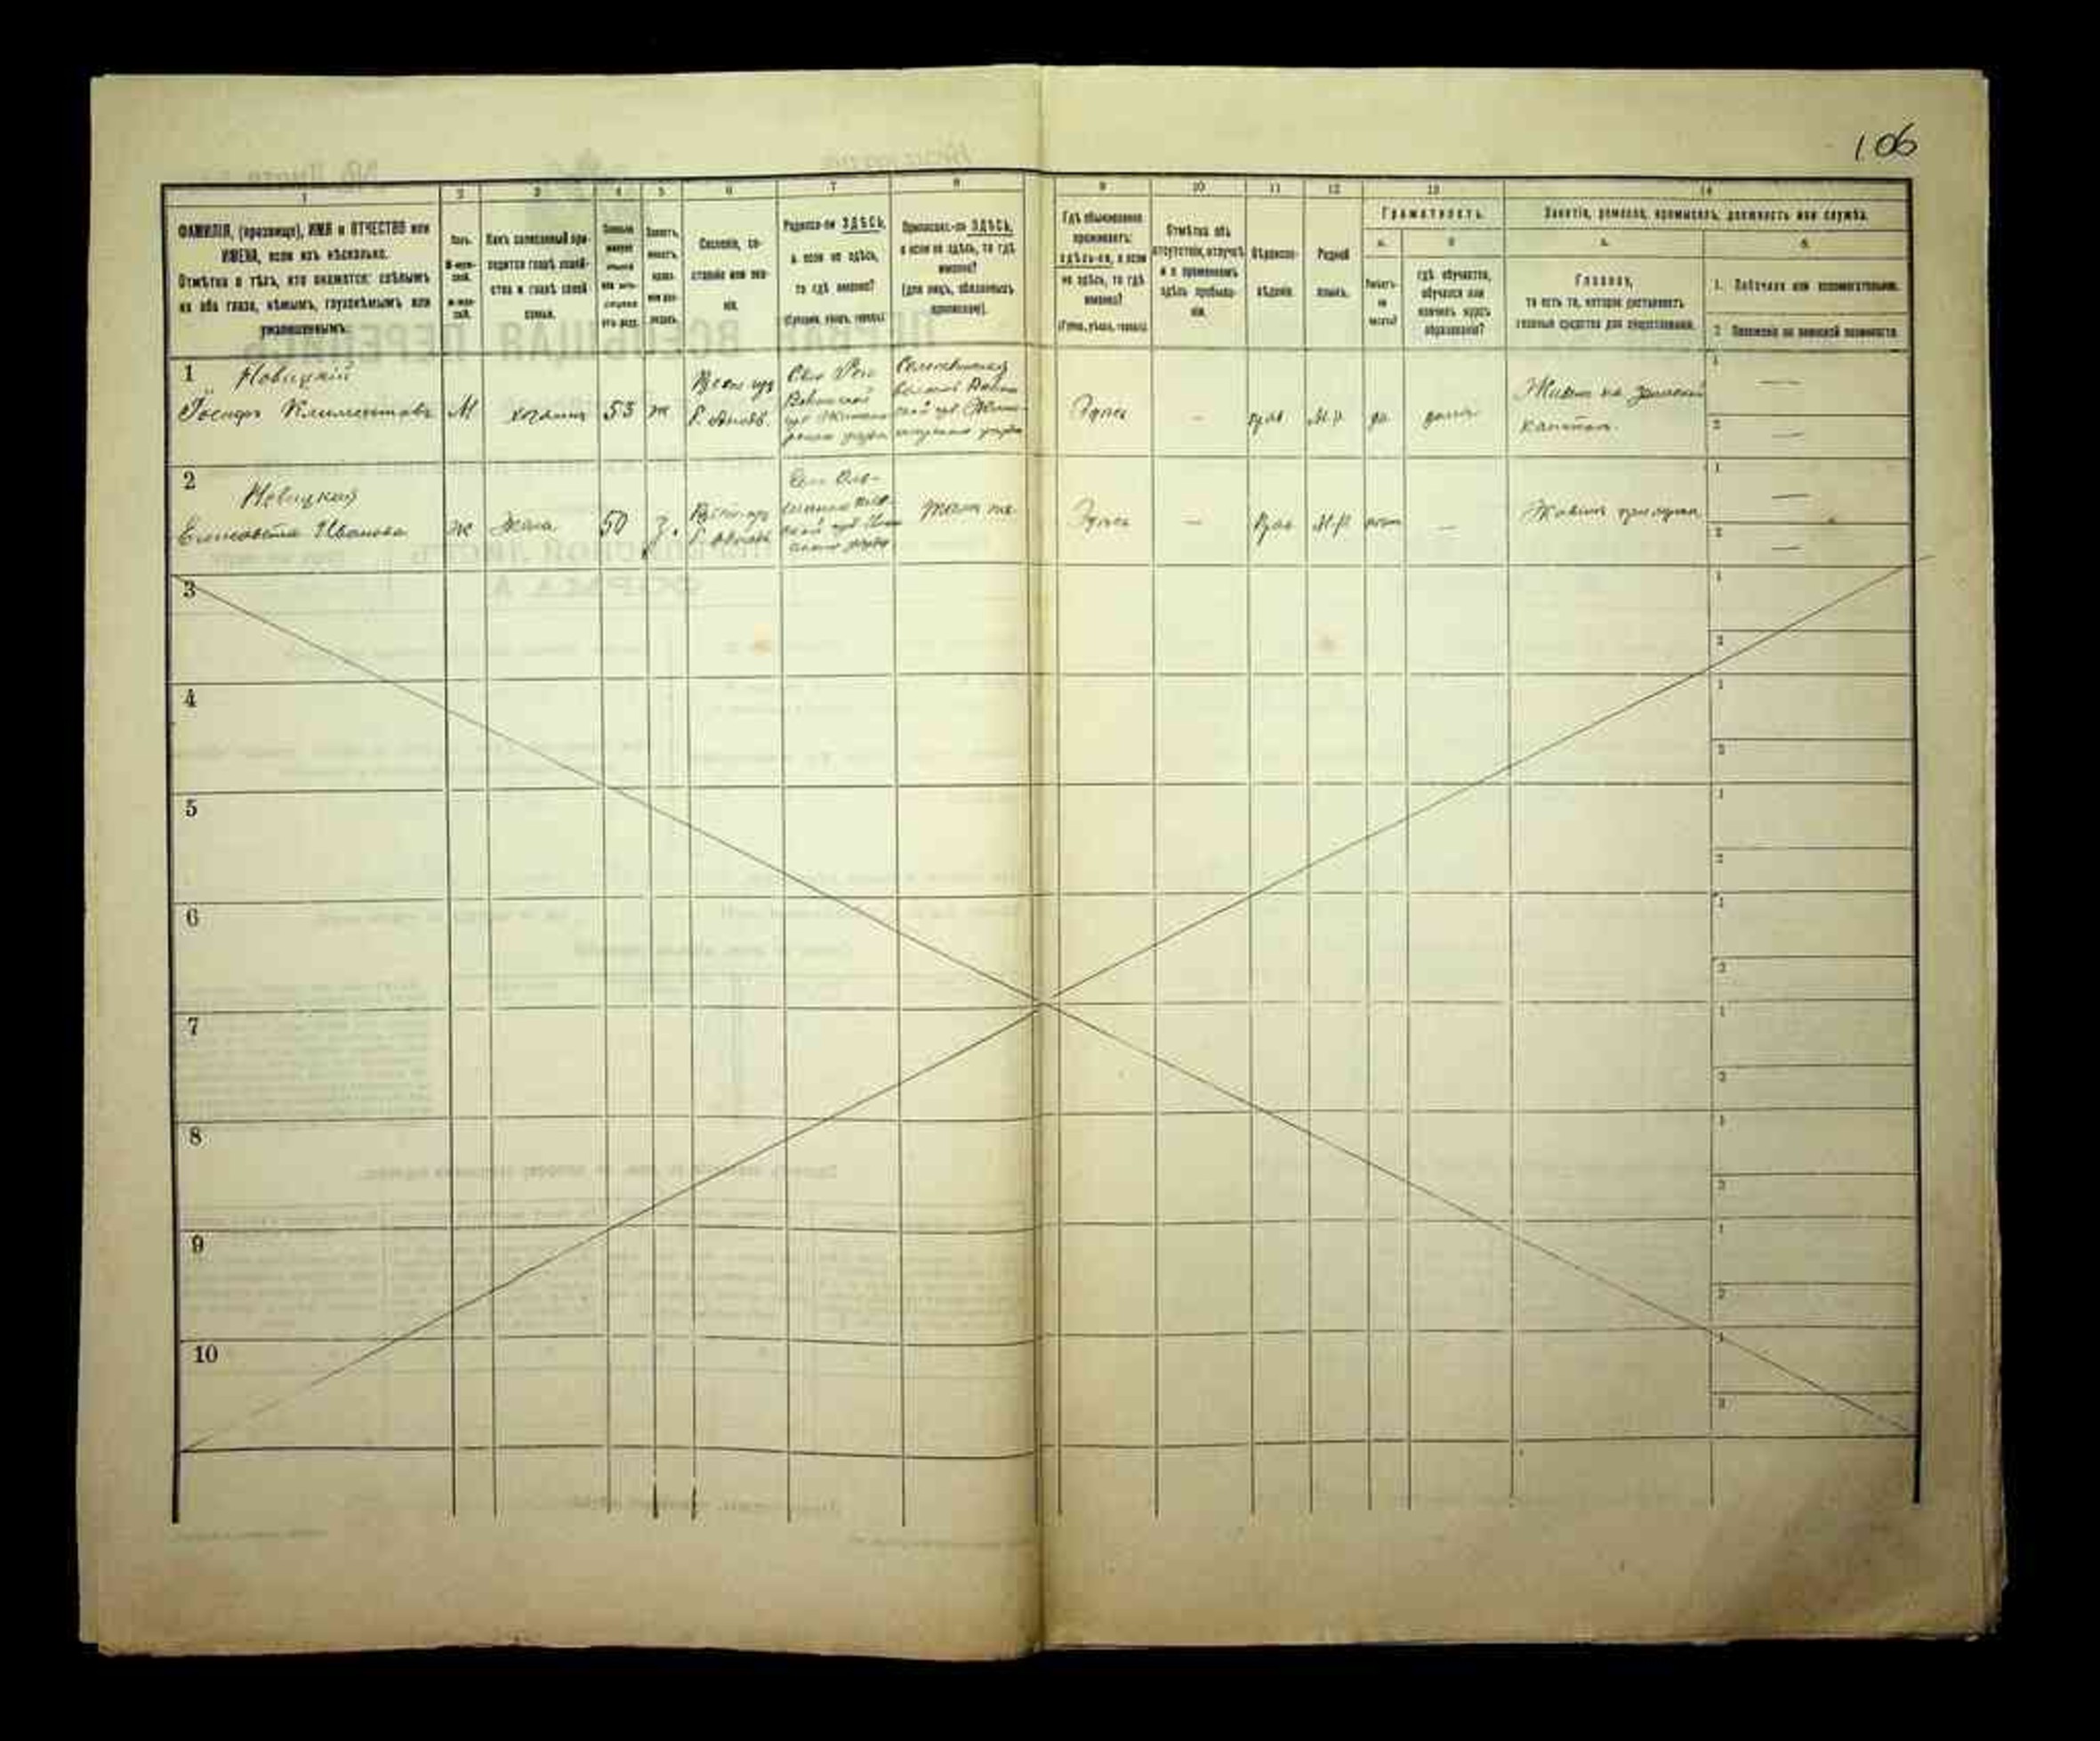 106
1 2 3 4 5 6 7 8 9 10 11 12 13 14
ФАМИЛІЯ, (прозвище), ИМЯ и ОТЧЕСТВО или
ИМЕНА, если ихъ нѣсколько.
Отмѣтка о тѣхъ, кто окажется: слѣпымъ
на оба глаза, нѣмымъ, глухонѣмымъ или
умалишеннымъ.
Полъ.
М-муж-
ской.
Ж-жен-
скій.
Какъ записанный при-
ходится главѣ хозяй-
ства и главѣ своей
семьи.
Сколько
минуло
лѣтъ
или мѣ-
сяцевъ
отъ роду.
Холостъ,
женатъ,
вдовъ
или раз-
веденъ.
Сословіе, со-
стояніе или зва-
ніе.
Родился-ли ЗДѢСЬ,
а если не здѣсь,
то гдѣ именно?
(Губернія, уѣздъ, городъ).
Приписанъ-ли ЗДѢСЬ,
а если не здѣсь, то гдѣ
именно?
(для лицъ, обязанныхъ
припискою).
Гдѣ обыкновенно
проживаетъ:
здѣсь-ли, а если
не здѣсь, то гдѣ
именно?
(Губер., уѣздъ, городъ).
Отмѣтка объ
отсутствіи, отлучкѣ
и о временномъ
здѣсь пребыва-
ніи.
Вѣроиспо-
вѣданіе.
Родной
языкъ.
Грамотность.
а.
Умѣетъ-
ли
читать?
б
гдѣ обучается,
обучался или
кончилъ курсъ
образованія?
Занятіе, ремесло, промыселъ, должность или служба.
а.
Главное,
то есть то, которое доставляетъ
главныя средства для существованія.
б.
1. Побочное или вспомогательное.
2. Положеніе по воинской повинности.
1 Новицкій
Іосифъ Климентовъ М хозяинъ 53 ж
Здѣсь — прав М.Р. да дома
капитал.
1 —
2 —
2 Новицкая
Елисавета Иванова ж Жена 50 з.
Тамъ же Здѣсь — прав М.Р. нѣтъ — Живетъ при мужѣ
1 —
2 —
3
1
2
4
1
2
5
1
2
6
1
2
7
1
2
8
1
2
9
1
2
10
1
2